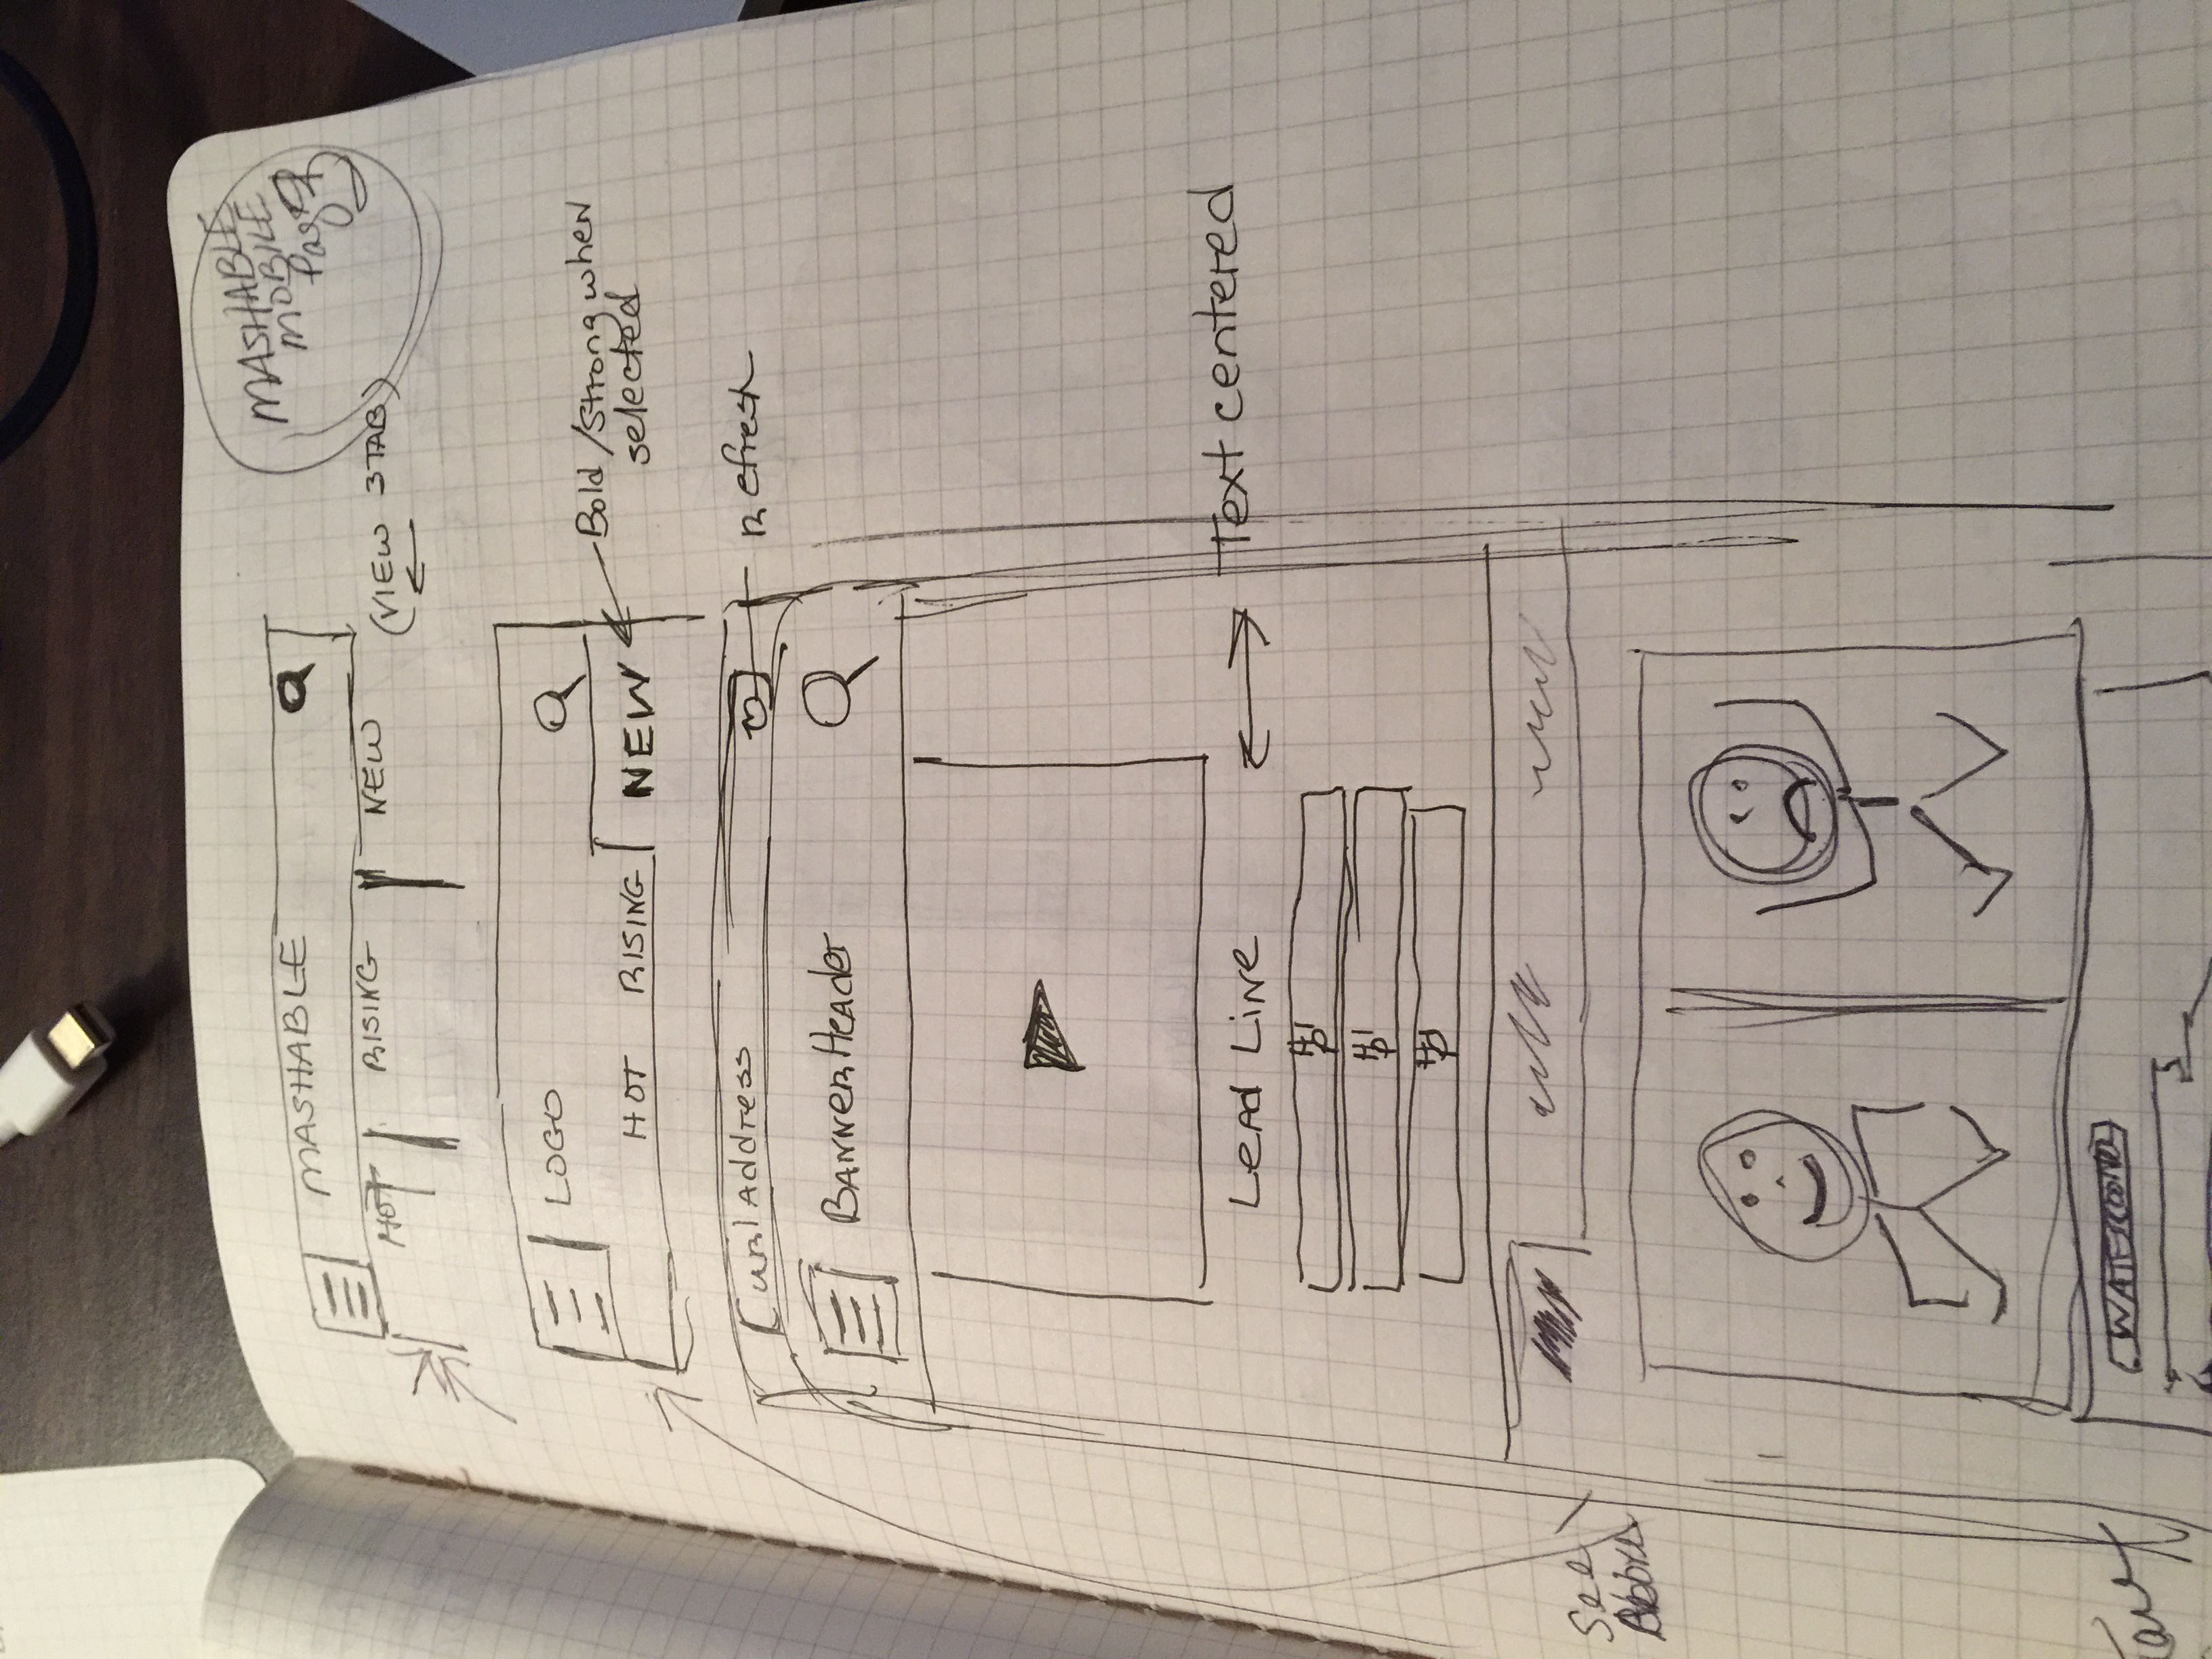 MASHABLE
MOBILE
Page
MASHABLE
HOT RISING NEW (VIEW 3 TAB)
LOGO
HOT RISING NEW
Bold/Strong when
selected
url Address
Refresh
BANNER Header
Lead Line
Text centered
H1
P
H1
P
H1
P
See
Above
WATERCOOLER